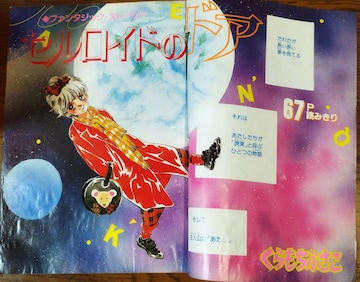 ◆ファンタジック・ストーリー
セルロイドのドア
だれかが
長い長い
夢を見てる
67P
読みきり
それは
あたしたちが
「現実」と呼ぶ
ひとつの物語
そして
主人公は「あたし」
くらもちふさこ
A
E
N
O
K